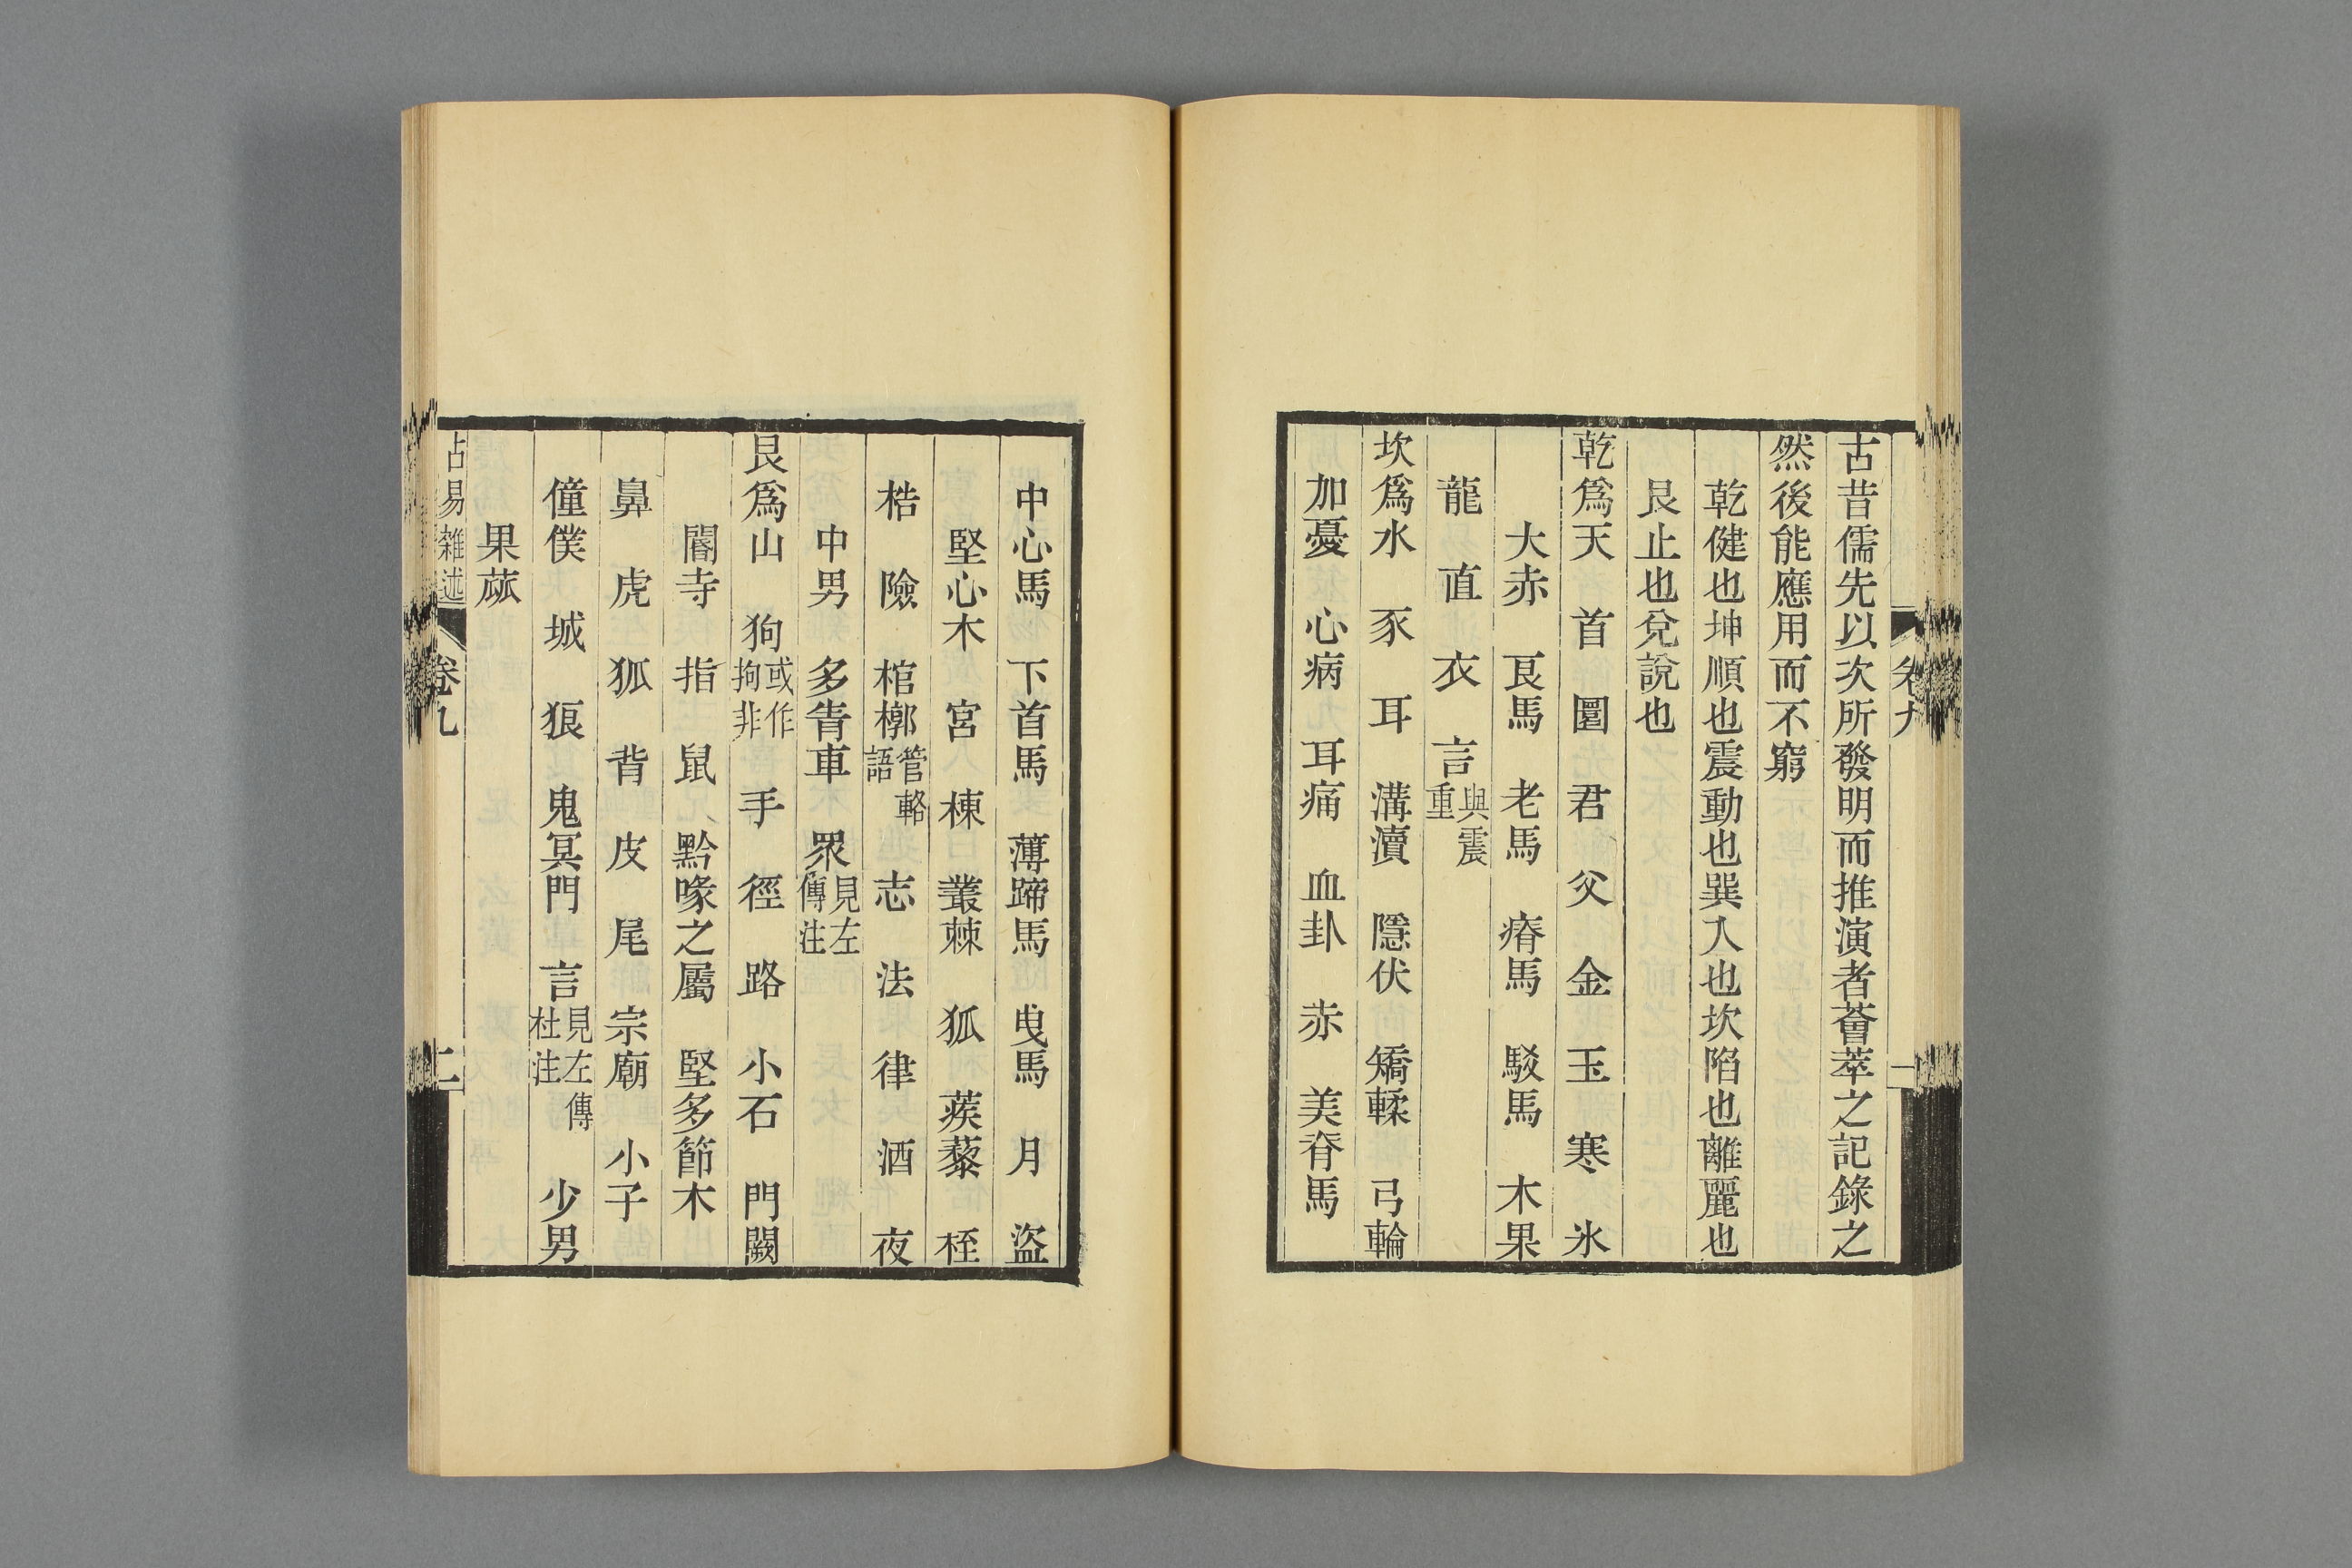 古昔儒先以次所發明而推演者薈萃之記錄之
然後能應用而不窮
乾健也坤順也震動也巽入也坎陷也離麗也
艮止也兌說也
乾爲天　首　圜　君　父　金　玉　寒　氷
大赤　良馬　老馬　瘠馬　駁馬　木果
龍　直　衣　言與震重
坎爲水　豕　耳　溝瀆　隱伏　矯輮　弓輪
加憂　心病　耳痛　血卦　赤　美脊馬
中心馬　下首馬　薄蹄馬　曳馬　月　盜
堅心木　宮　棟　叢棘　狐　蒺藜　桎
梏　險　棺槨管輅語　志　法　律　酒　夜
中男　多眚車　眾見左傳注
艮爲山　狗或作拘非　手　徑　路　小石　門闕
閽寺　指　鼠　黔喙之屬　堅多節木
鼻　虎　狐　背　皮　尾　宗廟　小子
僮僕　城　狼　鬼冥門　言見左傳杜注　少男
果蓏
占易雜述
卷九